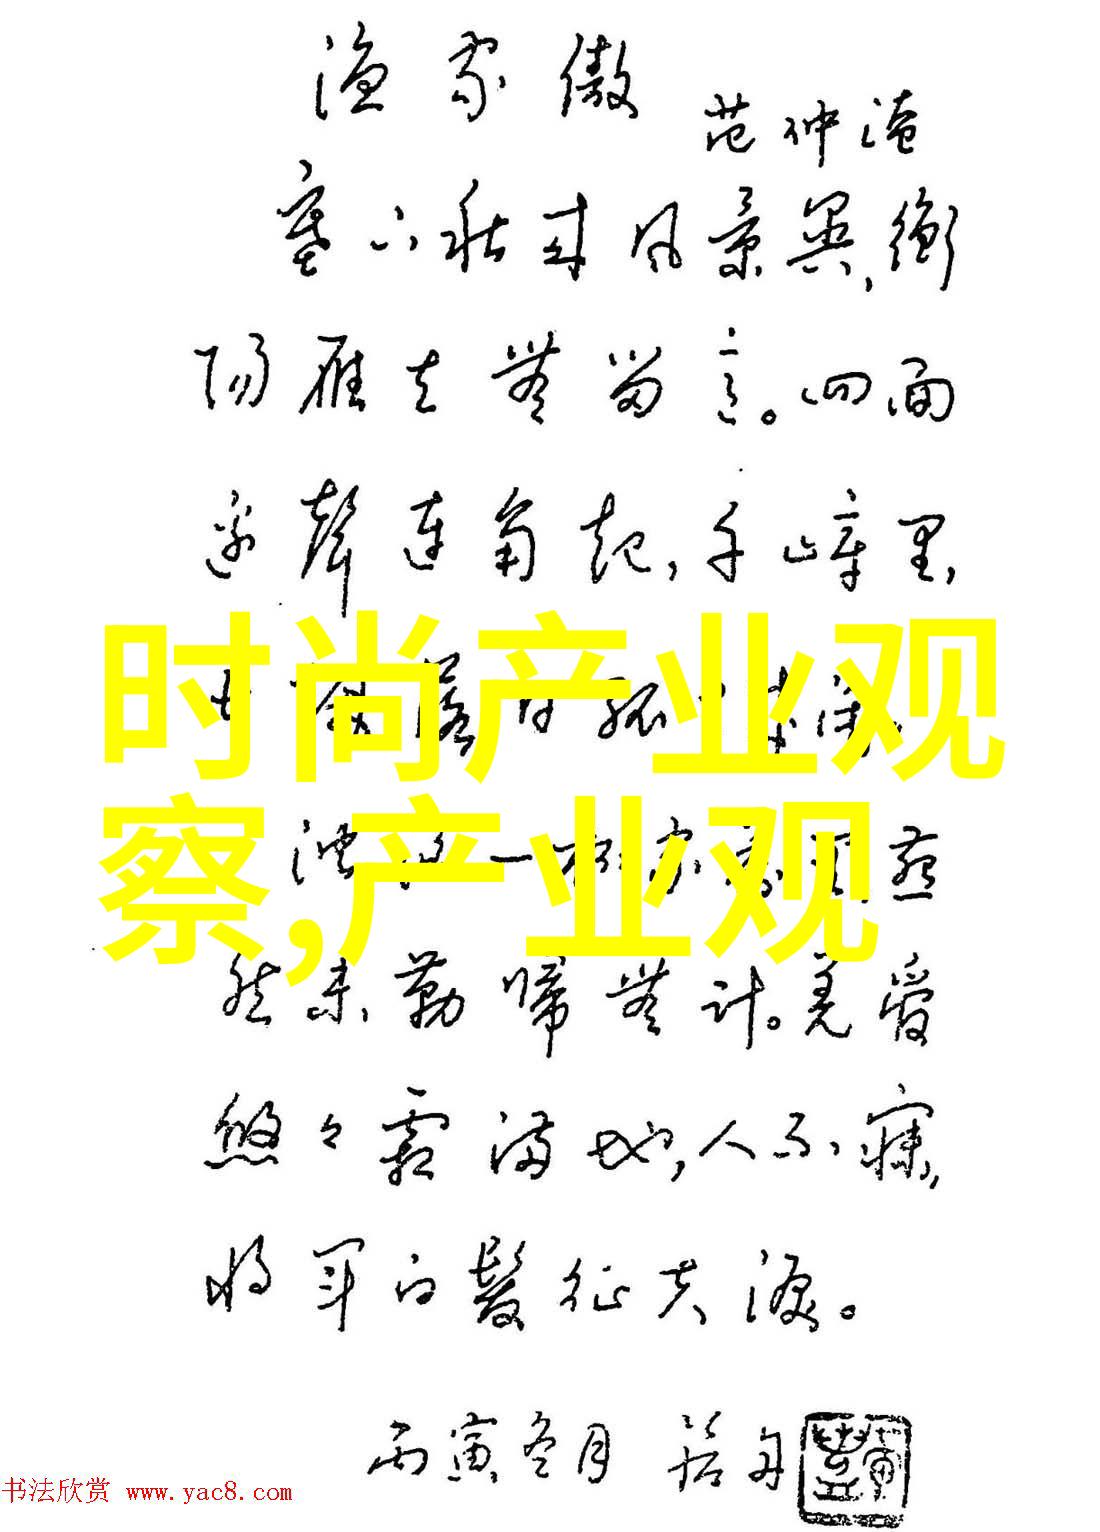 渔家傲
范仲淹
塞下秋来风景异,衡
阳雁去无留意。四面
边聲连角起,千嶂里,
落日孤
时尚产业观
浊酒一杯家万里,燕
察,产业观
然未勒归無计。羌
悠々霜满地,人不寐,
将军白髮征夫泪。
丙寅冬月
书法欣赏 www.yac8.com